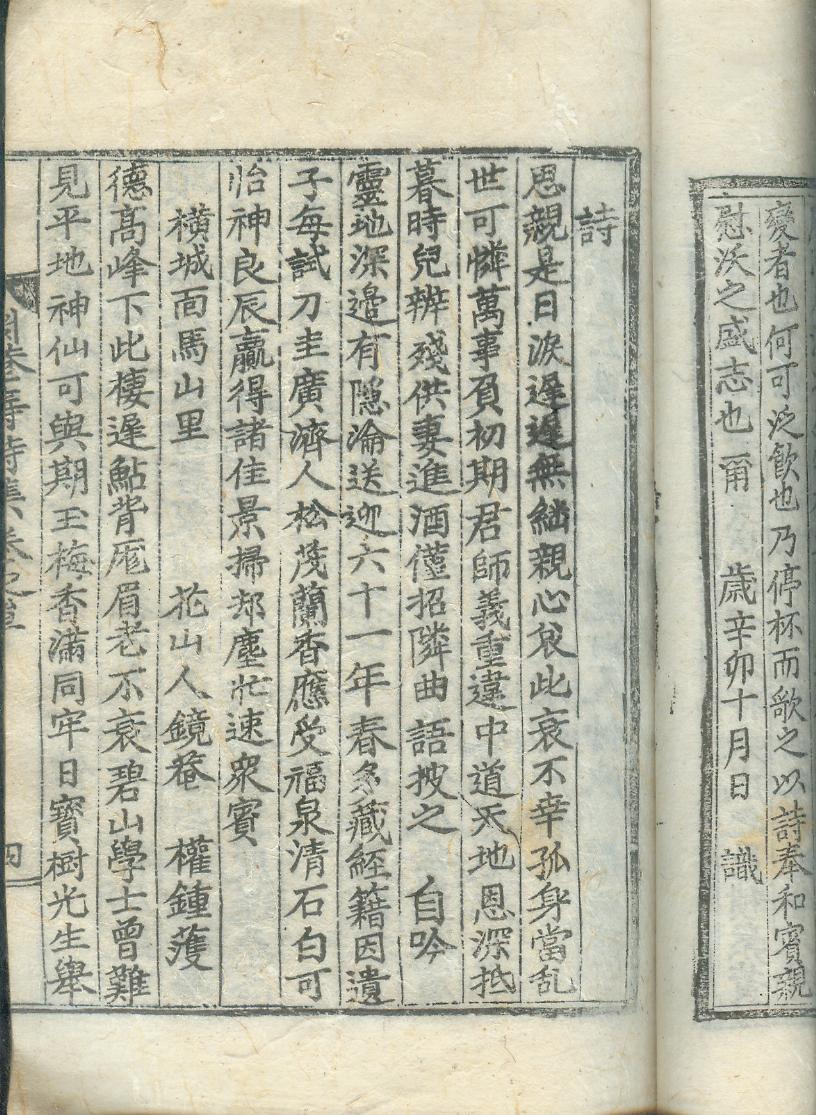 變者也何可泛飮也乃停杯而歌之以詩奉和賓親
慰沃之盛志也甭 歲辛卯十月日 識
詩
思親是日淚遲遲無繼親心及此衰不幸孤身當乱
世可憐萬事負初期君師義重違中道天地恩深抵
暮時兒辦殘供妻進酒僅招隣曲語披之 自吟
靈地深邊有隱淪送迎六十一年春多藏經籍因遺
子每試刀圭廣濟人松茂蘭香應受福泉清石白可
怡神良辰贏得諸佳景掃却塵忙速衆賓
橫城面馬山里 花山人鏡菴 權鍾
德髙峰下此棲遲鮐背厖眉老不衰碧山學士曾難
見平地神仙可與期玉梅香滿同牢日寶樹光生舉
詩集卷之
四